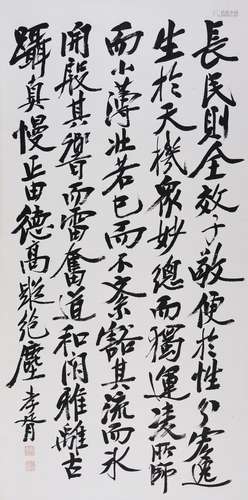 長民則全效子敬便於性分寄逸
生於天機眾妙總而獨運凌所師
而小薄壯若已而不紊豁其流而水
開殷其響而雷奮道和閑雅離古
躡真慢正由德高蹤絕塵 孝胥